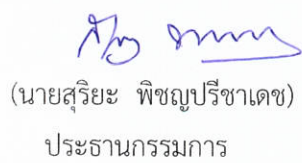 (นายสุริยะ พิชญปรีชาเดช)
ประธานกรรมการ